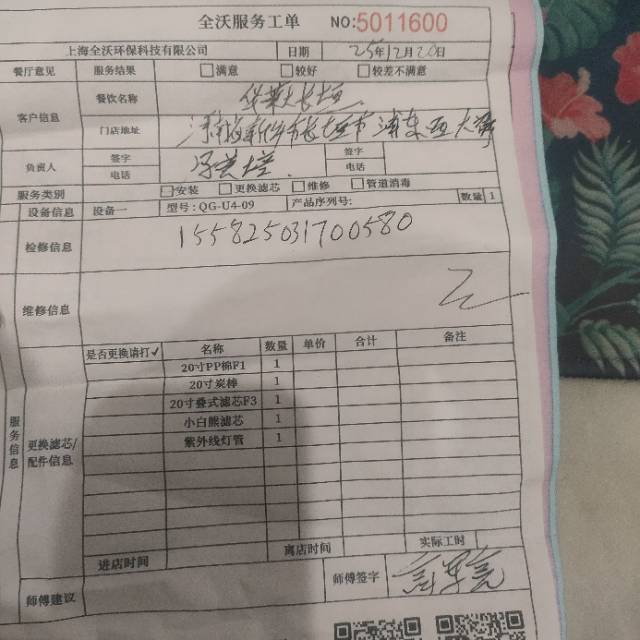 全沃服务工单 NO:5011600
上海全沃环保科技有限公司 日期 25年12月20日
餐厅意见 服务结果 □满意 □较好 □较差不满意
客户信息 餐饮名称
门店地址
负责人 签字 签字
电话 电话
服务类别 □安装 □更换滤芯 □维修 □管道消毒
设备信息 设备一 型号:QG-U4-09 产品序列号: 数量 1
检修信息 155825031700580
维修信息
服务信息 更换滤芯/配件信息 是否更换请打✓ 名称 数量 单价 合计 备注
20寸PP棉F1 1
20寸炭棒 1
20寸叠式滤芯F3 1
小白熊滤芯 1
紫外线灯管 1
进店时间 离店时间 实际工时
师傅建议 师傅签字